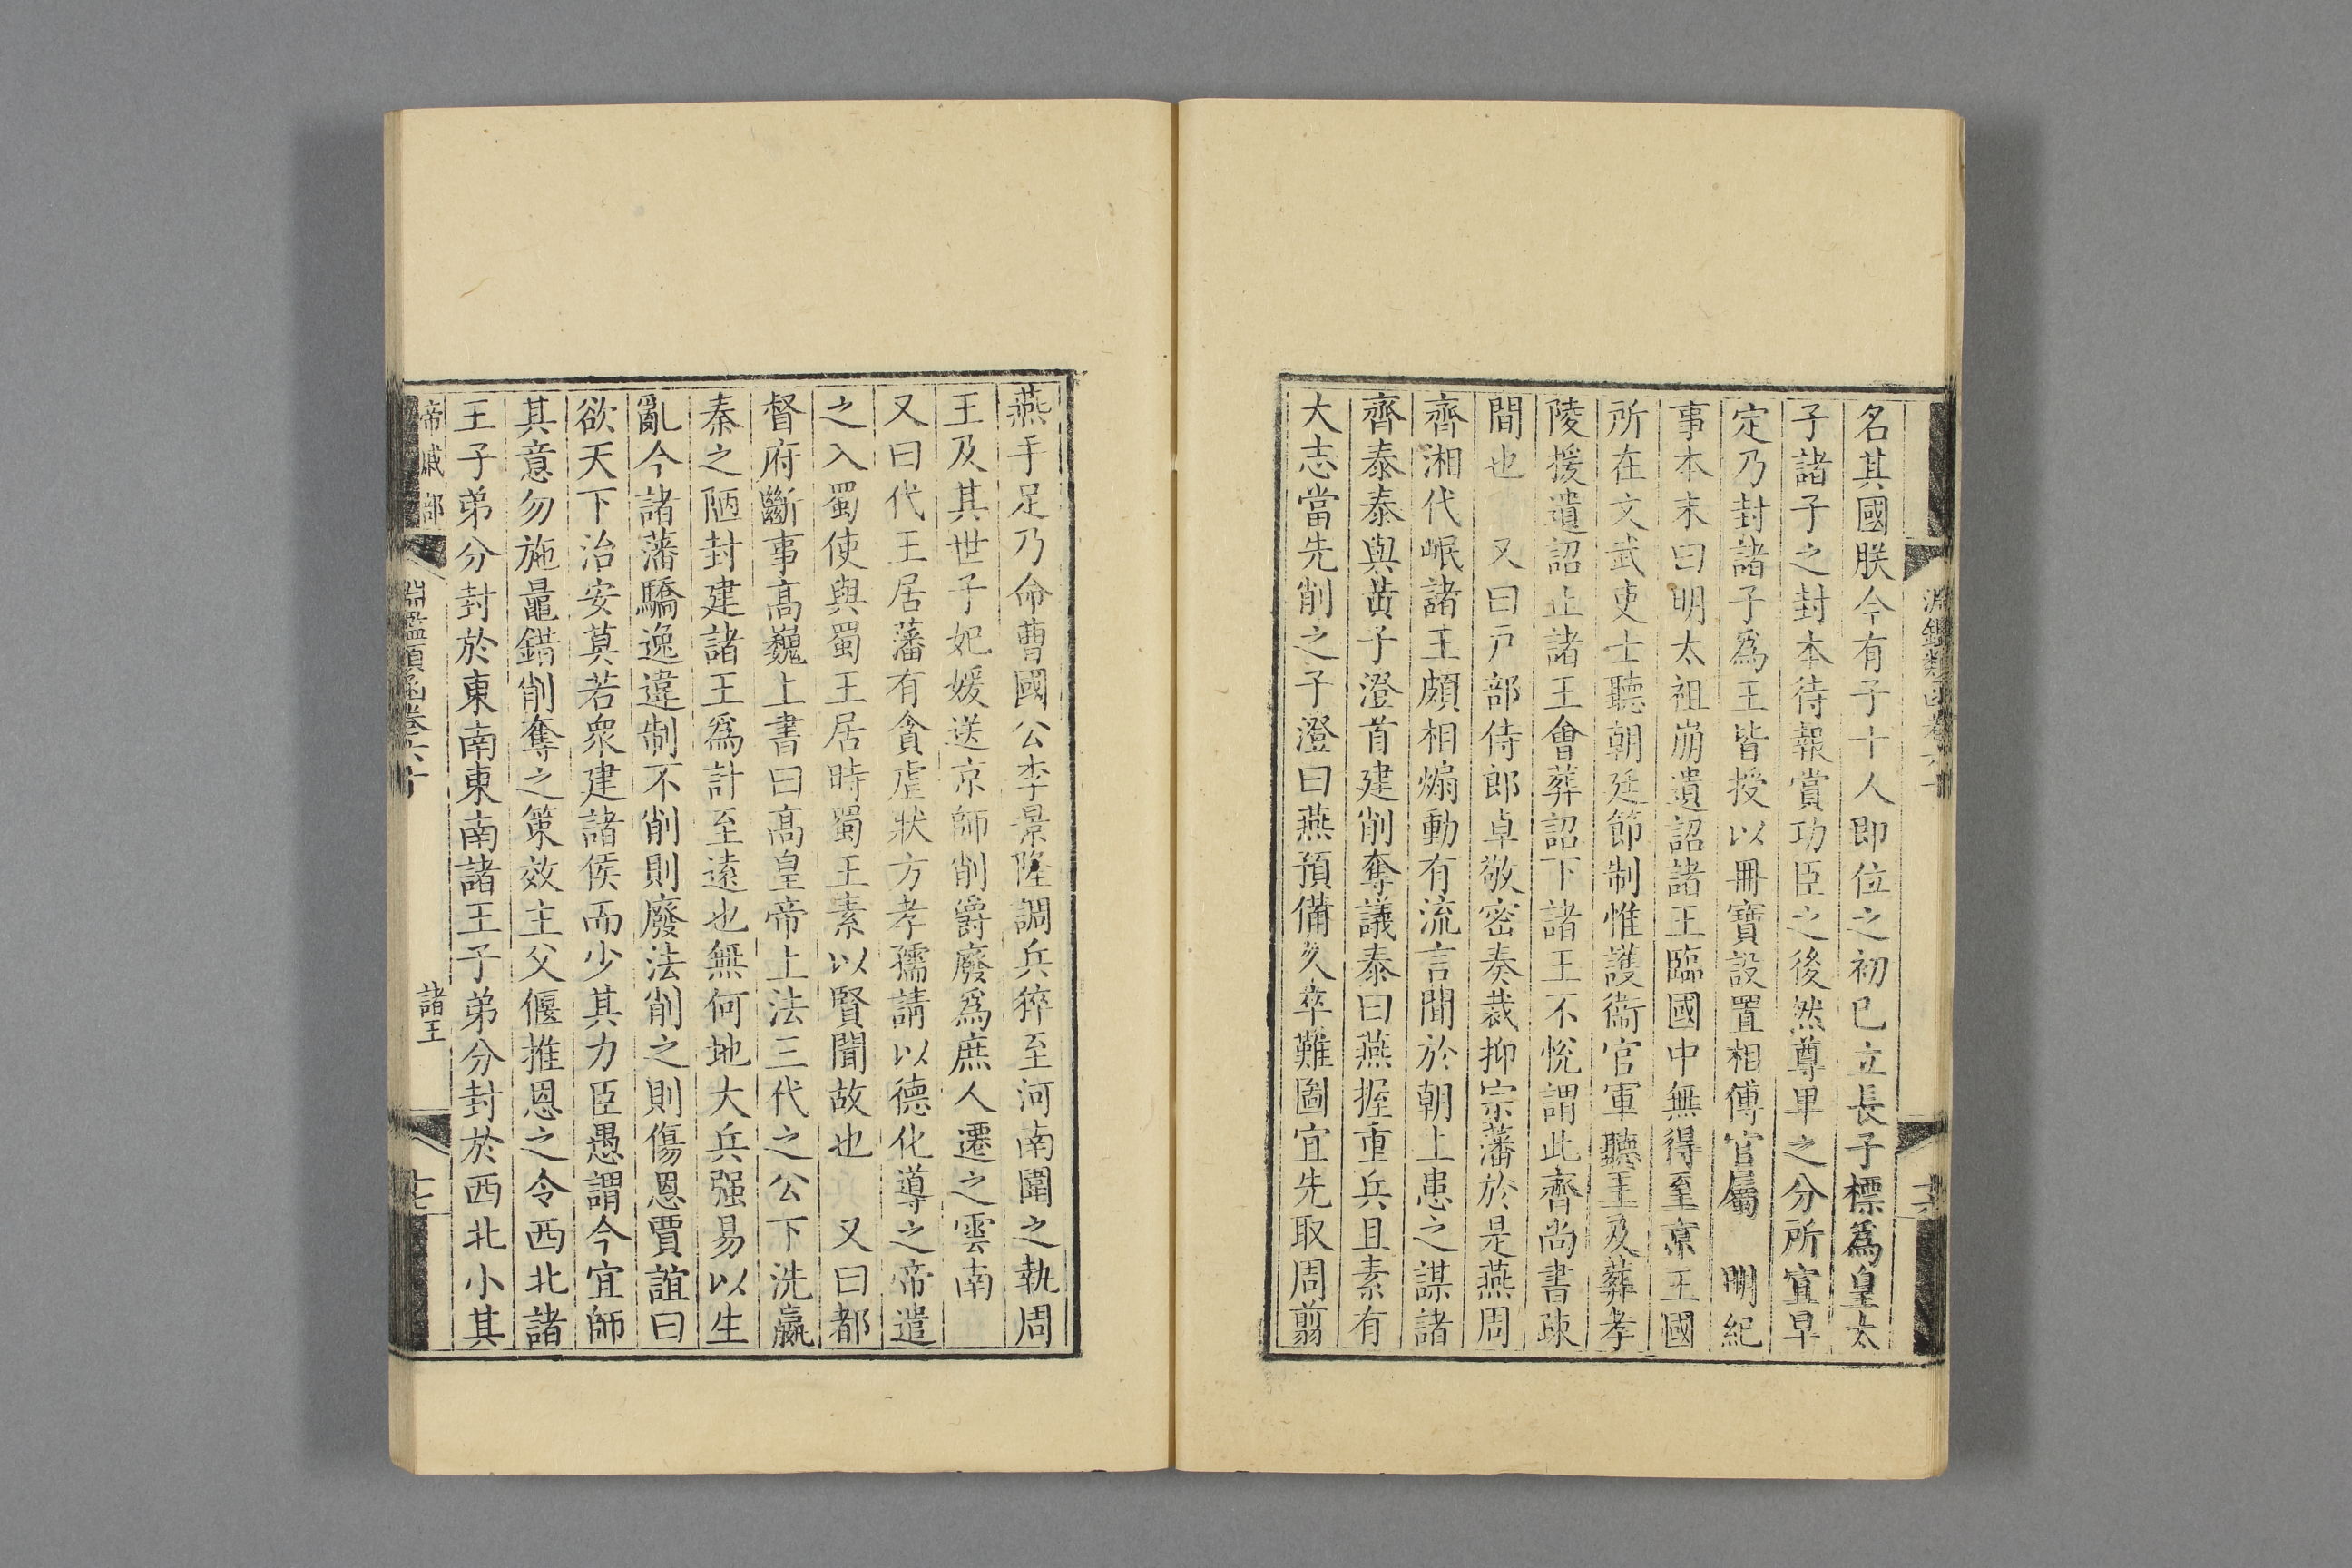 淵鑑類函卷六十
名其國朕今有子十人即位之初已立長子標爲皇太
子諸子之封本待報賞功臣之後然尊卑之分所宜早
定乃封諸子爲王皆授以冊寶設置相傅官屬　明紀
事本末曰明太祖崩遺詔諸王臨國中無得至京王國
所在文武吏士聽朝廷節制惟護衞官軍聽王及葬孝
陵援遺詔止諸王會葬詔下諸王不悅謂此齊尚書疎
間也　又曰戶部侍郎卓敬密奏裁抑宗藩於是燕周
齊湘代岷諸王頗相煽動有流言聞於朝上患之謀諸
齊泰泰與黃子澄首建削奪議泰曰燕握重兵且素有
大志當先削之子澄曰燕預備久卒難圖宜先取周翦
燕手足乃命曹國公李景隆調兵猝至河南圍之執周
王及其世子妃媛送京師削爵廢爲庶人遷之雲南
又曰代王居藩有貪虐狀方孝孺請以德化導之帝遣
之入蜀使與蜀王居時蜀王素以賢聞故也　又曰都
督府斷事高巍上書曰高皇帝上法三代之公下洗嬴
秦之陋封建諸王爲計至遠也無何地大兵强易以生
亂今諸藩驕逸違制不削則廢法削之則傷恩賈誼曰
欲天下治安莫若衆建諸侯而少其力臣愚謂今宜師
其意勿施鼂錯削奪之策效主父偃推恩之令西北諸
王子弟分封於東南東南諸王子弟分封於西北小其
帝戚部
淵鑑類函卷六十
諸王
十七